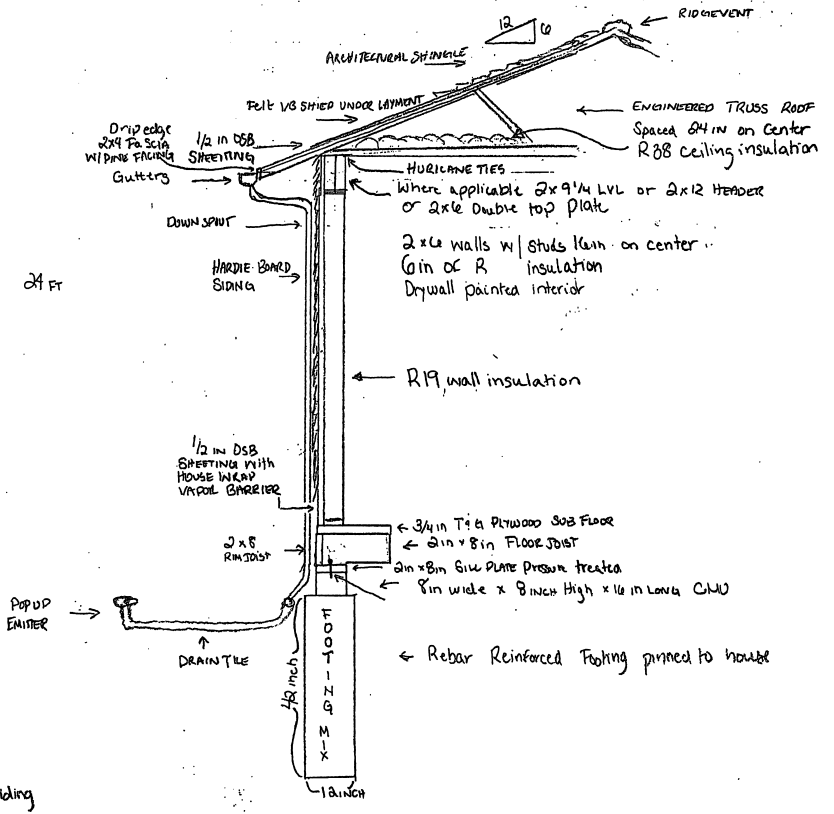 RIDGEVENT
12
6
ARCHITECTURAL SHINGLE
Felt VB SHIED UNDER LAYMENT
ENGINEERED TRUSS ROOF
Spaced 24 IN on Center
R38 ceiling insulation
Drip edge
2x4 Fascia
W/PINE FACING
Gutters
1/2 in OSB
SHEETING
HURICANE TIES
Where applicable 2x9 1/4 LVL or 2x12 HEADER
or 2x6 Double top Plate
DOWN SPOUT
2x6 walls w/ studs 16in on center
6in of R insulation
Drywall painted interior
HARDIE BOARD
SIDING
24 FT
R19 wall insulation
1/2 IN OSB
SHEETING with
HOUSE WRAP
VAPOR BARRIER
3/4 in T&G PLYWOOD SUB FLOOR
2in x 8in FLOOR JOIST
2 x 8
RIM JOIST
2in x 8in SILL PLATE Pressure treated
8in wide x 8 INCH High x 16 in LONG CMU
POP UP
EMITTER
DRAIN TILE
FOOTING MIX
42 inch
Rebar Reinforced Footing pinned to house
12 INCH
iding